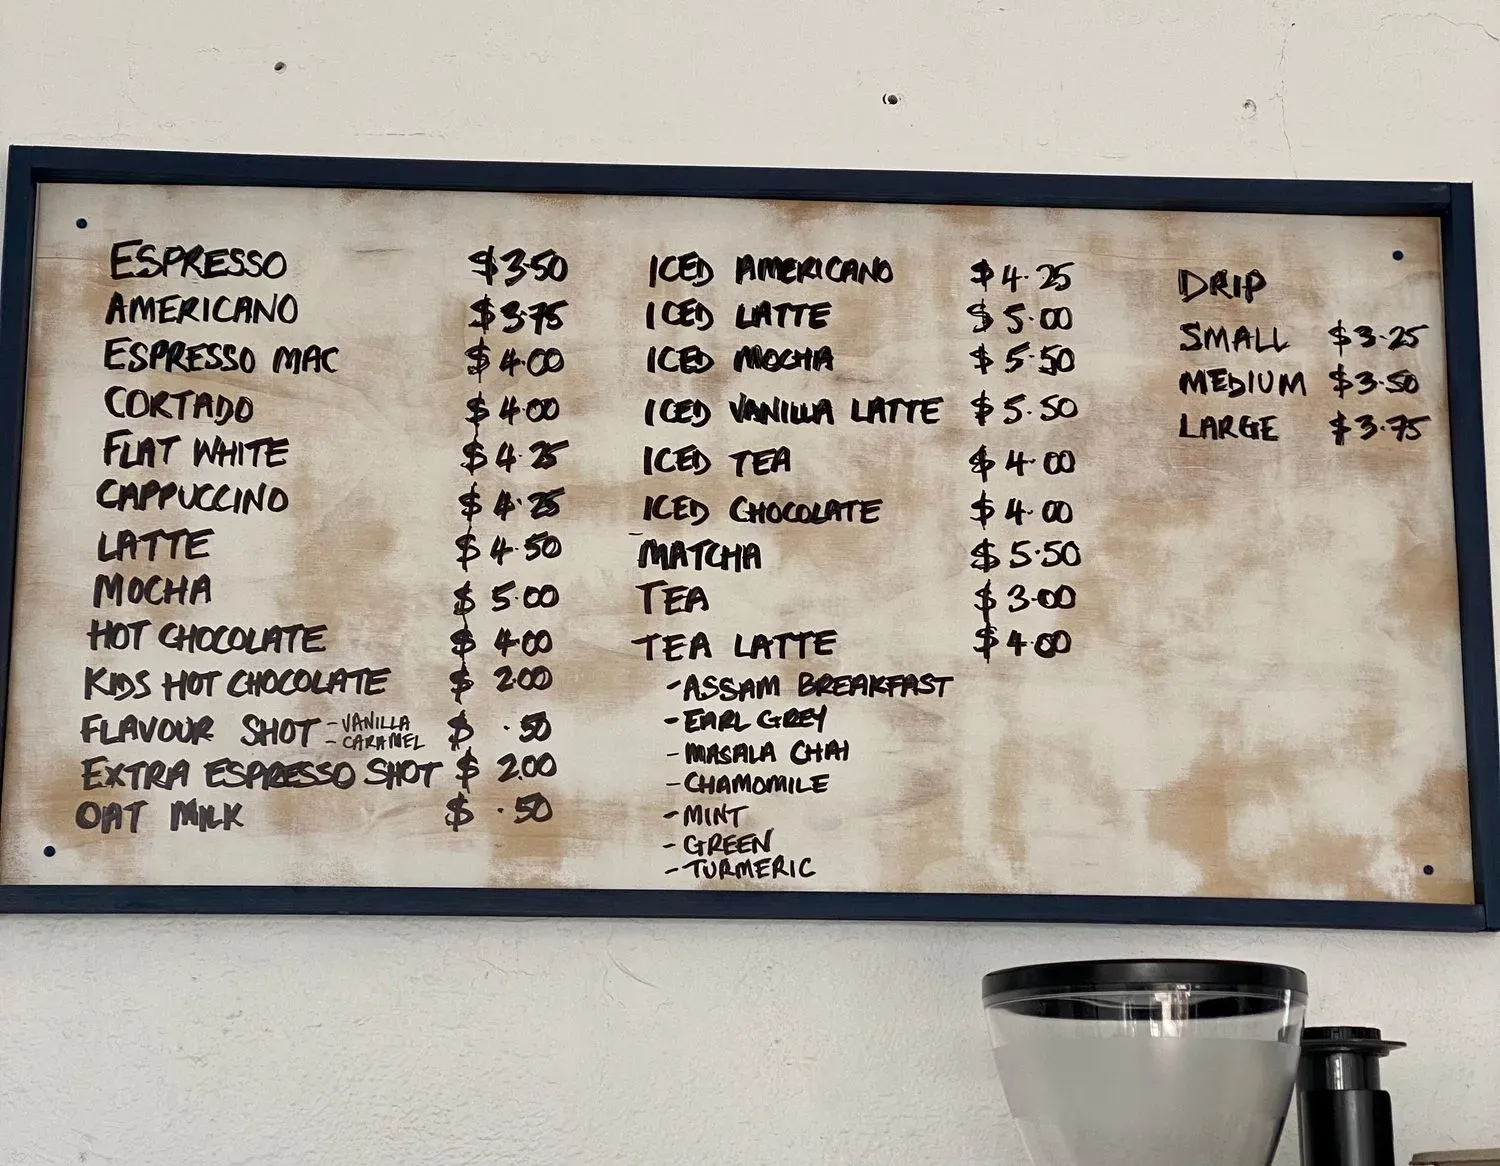 ESPRESSO $3.50
AMERICANO $3.75
ESPRESSO MAC $4.00
CORTADO $4.00
FLAT WHITE $4.25
CAPPUCCINO $4.25
LATTE $4.50
MOCHA $5.00
HOT CHOCOLATE $4.00
KIDS HOT CHOCOLATE $2.00
FLAVOUR SHOT -VANILLA $.50
-CARAMEL
EXTRA ESPRESSO SHOT $2.00
OAT MILK $.50
ICED AMERICANO $4.25
ICED LATTE $5.00
ICED MOCHA $5.50
ICED VANILLA LATTE $5.50
ICED TEA $4.00
ICED CHOCOLATE $4.00
MATCHA $5.50
TEA $3.00
TEA LATTE $4.00
-ASSAM BREAKFAST
-EARL GREY
-MASALA CHAI
-CHAMOMILE
-MINT
-GREEN
-TURMERIC
DRIP
SMALL $3.25
MEDIUM $3.50
LARGE $3.75